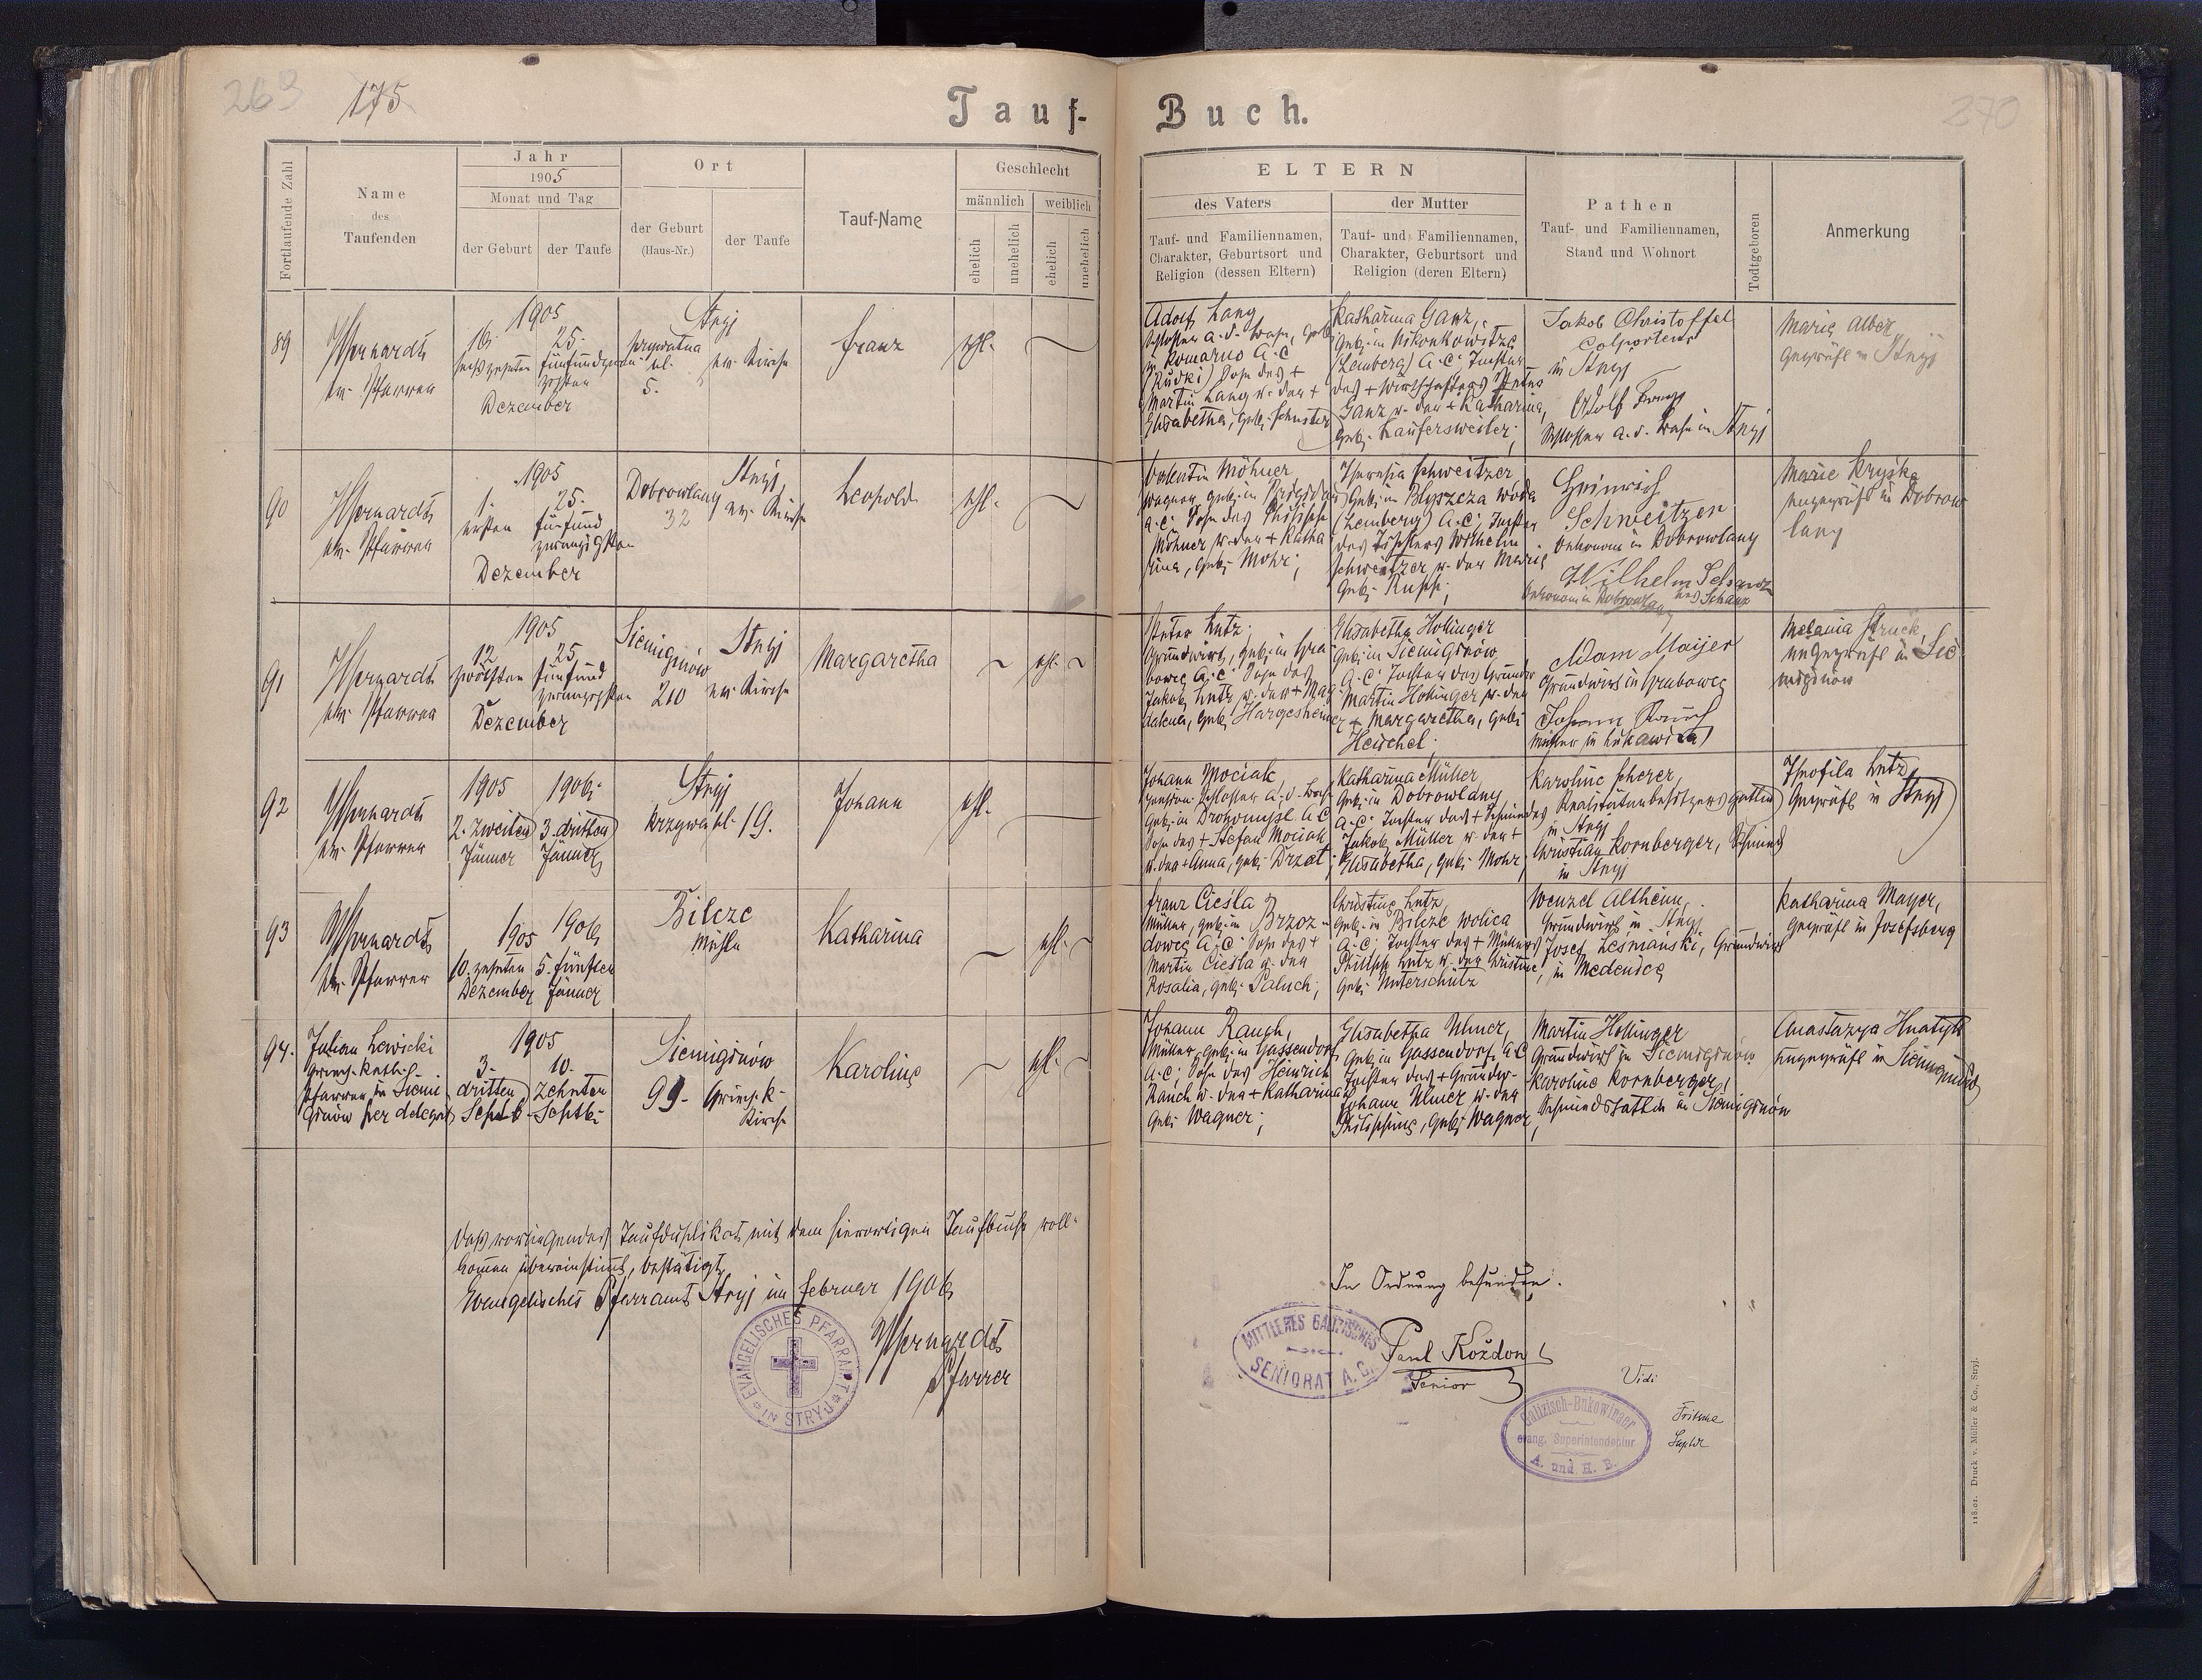 269
175
Tauf-Buch.
270
Fortlaufende Zahl
Name
des
Taufenden
Jahr
1905
Monat und Tag
der Geburt
der Taufe
Ort
der Geburt
(Haus-Nr.)
der Taufe
Tauf-Name
Geschlecht
männlich
weiblich
ehelich
unehelich
ehelich
unehelich
ELTERN
des Vaters
Tauf- und Familiennamen,
Charakter, Geburtsort und
Religion (dessen Eltern)
der Mutter
Tauf- und Familiennamen,
Charakter, Geburtsort und
Religion (deren Eltern)
Pathen
Tauf- und Familiennamen,
Stand und Wohnort
Todtgeboren
Anmerkung
89
ev. Pfarrer
1905
16.
sechzehnten
25.
fünfundzwanzigsten
Dezember
Stryj
5.
ev. Kirche
Franz
ehl.
Adolf Lang
Schlosser a. d. Bahn, geb.
in Komarno A.C.
(Rudki) Sohn des +
Martin Lang u. der +
Elisabetha, geb. Schuster
Katharina Ganz,
geb. in Nikonkowitze
(Lemberg) A.C. Tochter
des + Wirtschafters Petrus
Ganz u. der + Katharina,
geb. Laufersweiler;
Jakob Christoffel
Colporteur
in Stryj
Adolf
Schlosser a. d. Bahn in Stryj
Marie Alber
geprüft in Stryj
90
ev. Pfarrer
1905
1.
ersten
25.
fünfund
zwanzigsten
Dezember
Dobrowlany
32
Stryj,
ev. Kirche
Leopold
ehl.
Valentin Möhner
Wagner geb. in Brigidau
A.C. Sohn des Philipp
Möhner u. der + Katha
rina, geb. Mohr;
Theresia Schweitzer
geb. in Blyszcza woda
(Lemberg) A.C. Tochter
des Töpfers Wilhelm
Schweitzer u. der Marie
geb. Rupp;
Heinrich
Schweitzer
Oekonom in Dobrowlany
Wilhelm Schanz
Oekonom in Dobrowlany
Marie Kryska
ungeprüft in Dobrow
lany
91
ev. Pfarrer
1905
12.
zwölften
25.
fünfund
zwanzigsten
Dezember
Siemiginów
210
Stryj
ev. Kirche
Margaretha
ehl.
Peter Lutz;
Grundwirt, geb. in Gra
bowce A.C. Sohn des
Jakob Lutz u. der + Mag
dalena, geb. Hargesheimer
Elisabetha Hollinger
geb. in Siemiginów
A.C. Tochter des Grundw.
Martin Hollinger u. der
+ Margaretha, geb.
Heuchel;
Adam Maijer
Grundwirt in Grabowce
Johann Rauch
Müller in Lukawica
Melania Struck,
ungeprüft in Sie
miginów
92
ev. Pfarrer
1905
2. zweiten
Jänner
1906
3. dritten
Jänner
Stryj
19.
Johann
ehl.
Johann Mociak
geb. in Drohomysl A.C.
Sohn des + Stefan Mociak
u. der + Anna, geb. Drzat;
Katharina Müller,
geb. in Dobrowlany
A.C. Tochter des + Schmiedes
Jakob Müller u. der +
Elisabetha, geb. Mohr;
Karoline Scherer,
Realitätenbesitzers gattin
in Stryj
Christian Kornberger, Schmied
in Stryj
Theofila Lutz
geprüft in Stryj
93
ev. Pfarrer
1905
10. zehnten
Dezember
1906
5. fünften
Jänner
Bilcze
Mühle
Katharina
ehl.
Franz Ciesla
Müller, geb. in Brzoz-
dowce A.C. Sohn des +
Martin Ciesla u. der
Rosalia, geb. Paluch;
Christine Lutz,
geb. in Bilcze Wolica
A.C. Tochter des + Müllers
Philipp Lutz u. der Kristine,
geb. Unterschütz
Wenzel Altheim,
Grundwirt in Stryj
Josef Lesmański, Grundwirt
in Medenice
Katharina Mayer,
geprüft in Josefsberg
94.
Julian Lewicki
griech. kath.
Pfarrer in Siemi
ginów per delegat.
1905
3.
dritten
Septb.
10.
zehnten
Septb.
Siemiginów
99.
Griech. K.
Kirche
Karoline
ehl.
Johann Rauch,
Müller, geb. in Gassendorf
A.C. Sohn des Heinrich
Rauch u. der + Katharina
geb. Wagner;
Elisabetha Ulmer,
geb. in Gassendorf A.C.
Tochter des + Grundw.
Johann Ulmer u. der
Philippine, geb. Wagner;
Martin Hollinger
Grundwirt in Siemiginów
Karoline Kornberger,
Schmiedsgattin in Siemiginów
Anastazya Hnatyk
ungeprüft in Siemiginów
Daß vorliegendes Taufduplikat mit dem hierortigen Taufbuche voll-
kommen übereinstimmt, bestätigt
Evangelisches Pfarramt Stryj im Februar 1906
Pfarrer
EVANGELISCHES PFARRAMT
IN STRYJ
In Ordnung befunden.
MITTLERES GALIZISCHES
SENIORAT A. C.
Paul Kożdon
Senior
Vidi
Fritsche
Suptdt
Galizisch-Bukowinaer
evang. Superintendentur
A. und H. B.
118.01. Druck v. Müller & Co., Stryj.